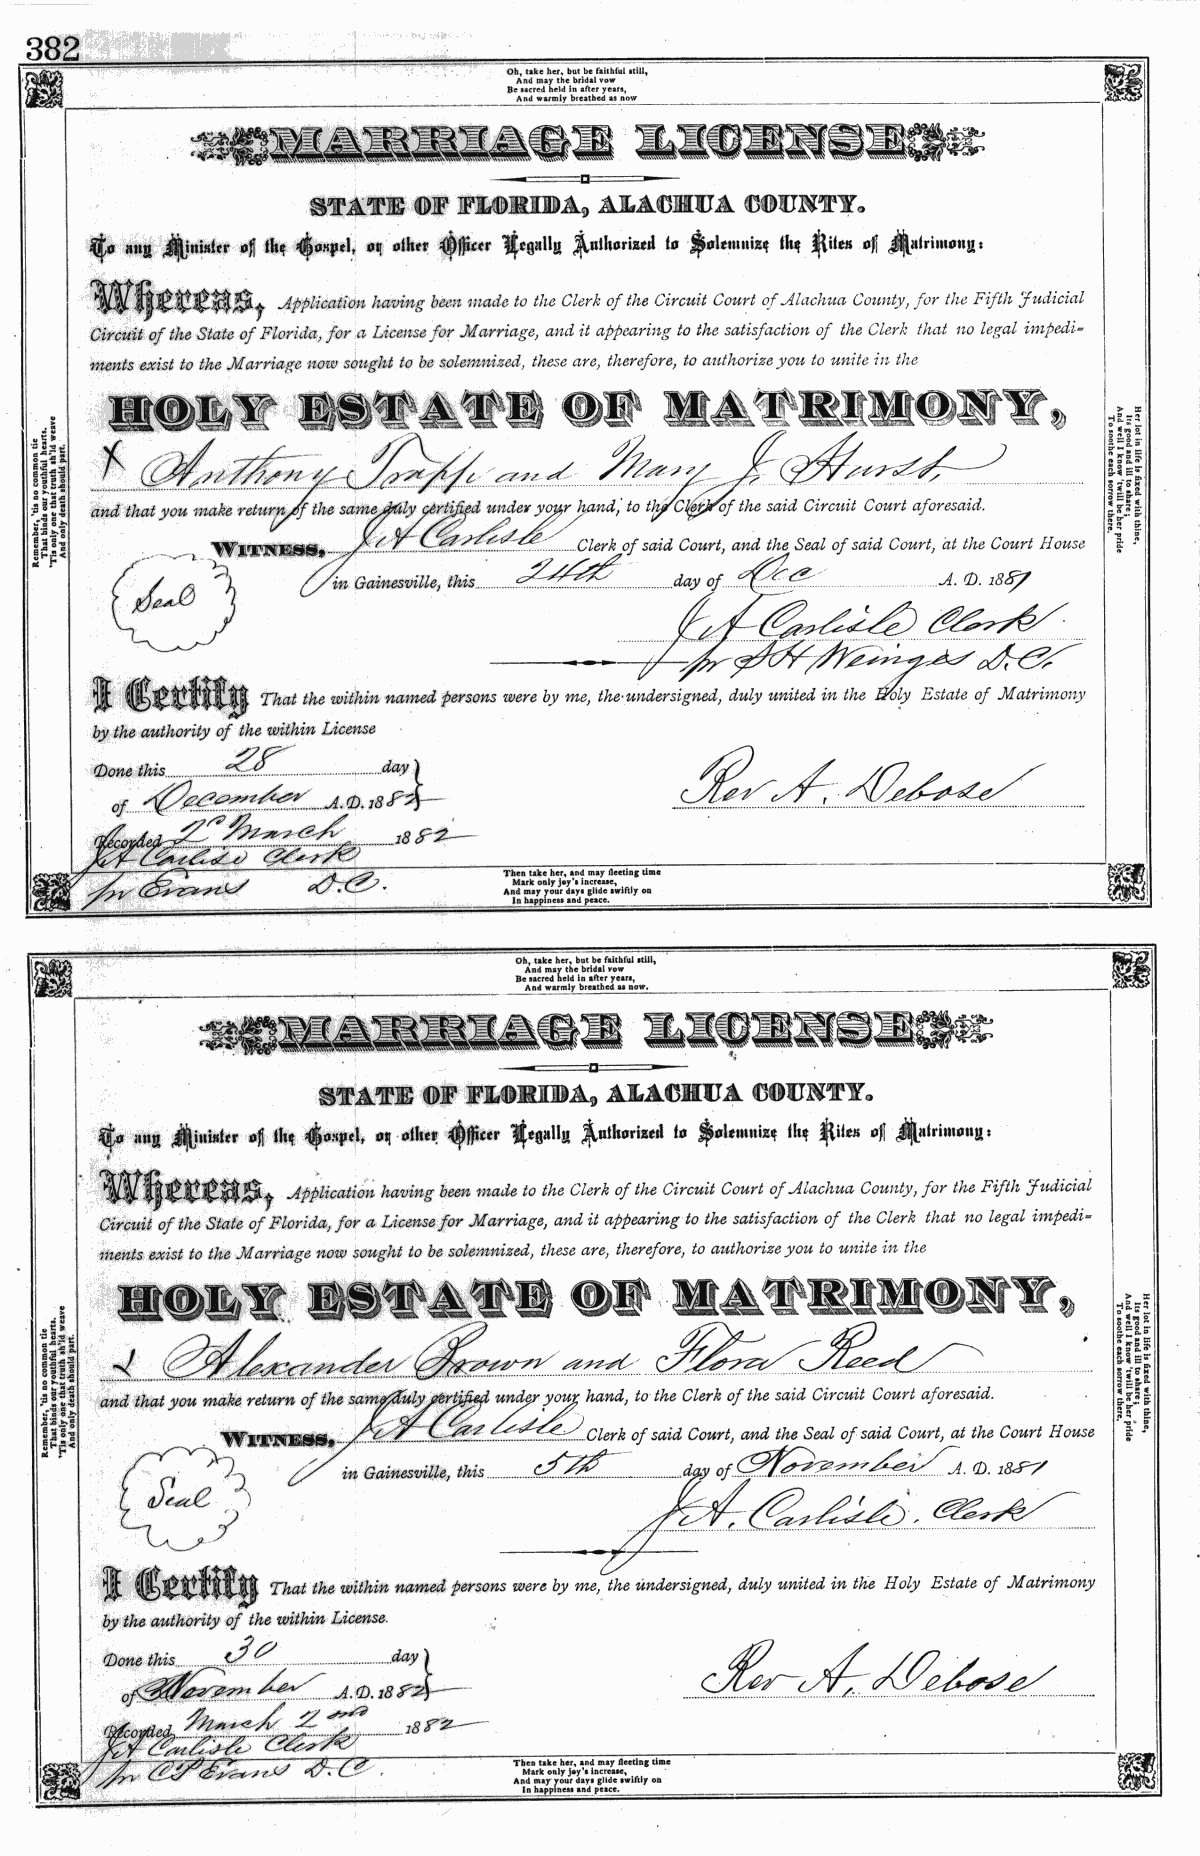 382
Oh, take her, but be faithful still,
And may the bridal vow
Be sacred held in after years,
And warmly breathed as now
MARRIAGE LICENSE
STATE OF FLORIDA, ALACHUA COUNTY.
To any Minister of the Gospel, or other Officer Legally Authorized to Solemnize the Rites of Matrimony:
Whereas, Application having been made to the Clerk of the Circuit Court of Alachua County, for the Fifth Judicial
Circuit of the State of Florida, for a License for Marriage, and it appearing to the satisfaction of the Clerk that no legal impedi-
ments exist to the Marriage now sought to be solemnized, these are, therefore, to authorize you to unite in the
HOLY ESTATE OF MATRIMONY,
X Anthony Trapp and Mary J. Hurst,
and that you make return of the same duly certified under your hand, to the Clerk of the said Circuit Court aforesaid.
WITNESS, J A Carlisle Clerk of said Court, and the Seal of said Court, at the Court House
in Gainesville, this 24th day of Dec A. D. 1881
Seal
J A Carlisle Clerk
pr S H Weinges D.C.
I Certify That the within named persons were by me, the undersigned, duly united in the Holy Estate of Matrimony
by the authority of the within License
Done this 28 day
of December A.D. 1882
Rev A. Debose
Recorded 2d March 1882
J A Carlise Clerk
pr Evans D.C.
Then take her, and may fleeting time
Mark only joy's increase,
And may your days glide swiftly on
In happiness and peace.
Remember, 'tis no common tie
That binds our youthful hearts,
'Tis only one that truth sh'ld weave
And only death should part.
Her lot in life is fixed with thine,
Its good and ill to share;
And well I know 'twill be her pride
To soothe each sorrow there.
Oh, take her, but be faithful still,
And may the bridal vow
Be sacred held in after years,
And warmly breathed as now.
MARRIAGE LICENSE
STATE OF FLORIDA, ALACHUA COUNTY.
To any Minister of the Gospel, or other Officer Legally Authorized to Solemnize the Rites of Matrimony:
Whereas, Application having been made to the Clerk of the Circuit Court of Alachua County, for the Fifth Judicial
Circuit of the State of Florida, for a License for Marriage, and it appearing to the satisfaction of the Clerk that no legal impedi-
ments exist to the Marriage now sought to be solemnized, these are, therefore, to authorize you to unite in the
HOLY ESTATE OF MATRIMONY,
X Alexander Brown and Flora Reed
and that you make return of the same duly certified under your hand, to the Clerk of the said Circuit Court aforesaid.
WITNESS, J A Carlisle Clerk of said Court, and the Seal of said Court, at the Court House
in Gainesville, this 5th day of November A. D. 1881
Seal
J A. Carlisle. Clerk
I Certify That the within named persons were by me, the undersigned, duly united in the Holy Estate of Matrimony
by the authority of the within License.
Done this 30 day
of November A.D. 1882
Rev A. Debose
Recorded March 2nd 1882
J A Carlisle Clerk
pr C P Evans D.C.
Then take her, and may fleeting time
Mark only joy's increase,
And may your days glide swiftly on
In happiness and peace.
Remember, 'tis no common tie
That binds our youthful hearts.
'Tis only one that truth sh'ld weave
And only death should part.
Her lot in life is fixed with thine,
Its good and ill to share;
And well I know 'twill be her pride
To soothe each sorrow there.